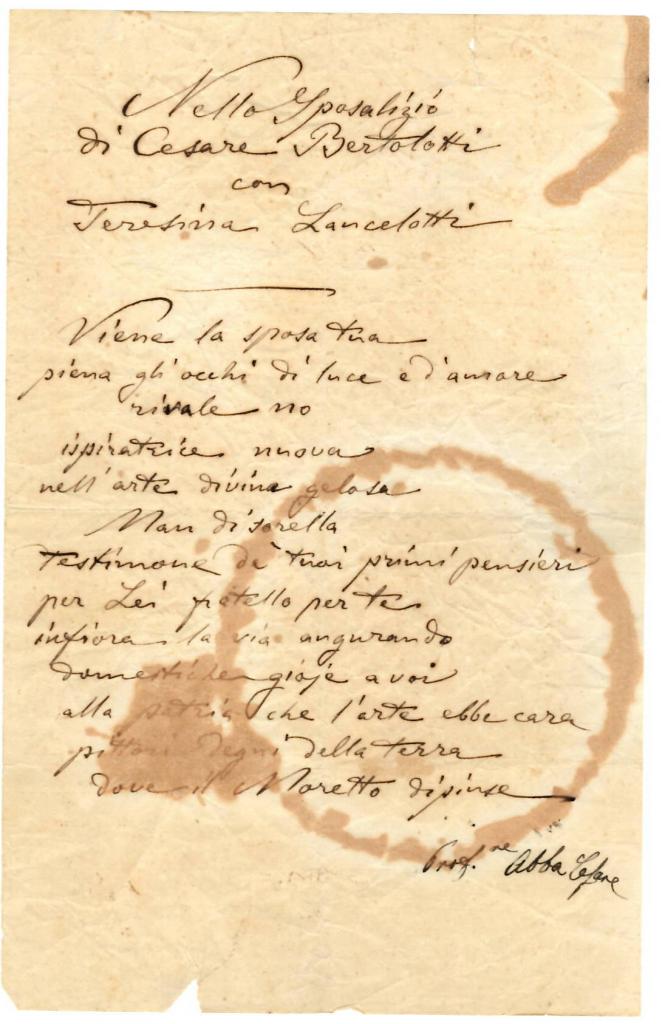 Nello Sposalizio
di Cesare Bertolotti
con
Teresina Lancelotti
Viene la sposa tua
piena gli occhi di luce e d'amore
rivale no
ispiratrice nuova
nell'arte divina gelosa
Man di sorella
Testimone de' tuoi primi pensieri
per Lei fratello per te
infiora la via augurando
domestiche gioje a voi
alla patria che l'arte ebbe cara
pittori degni della terra
dove il Moretto dipinse
Prof.re Abba Cesare